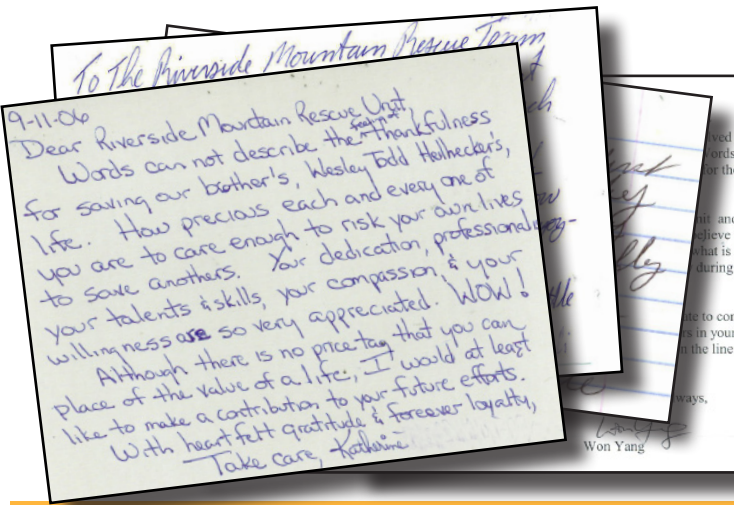 To The Riverside Mountain Rescue Team
9-11-06
Dear Riverside Mountain Rescue Unit,
Words can not describe the feeling of thankfulness
for saving our brother's, Wesley Todd Heilhecker's,
life. How precious each and every one of
you are to care enough to risk your own lives
to save anothers. Your dedication, professional
your talents & skills, your compassion, & your
willingness are so very appreciated. WOW!
Although there is no price tag that you can
place of the value of a life, I would at least
like to make a contribution to your future efforts.
With heartfelt gratitude & foreever loyalty,
Take care, Katherine
ved
ords
for the
nit and
elieve
what is
during
te to cor
rs in your
n the line
ways,
Won Yang